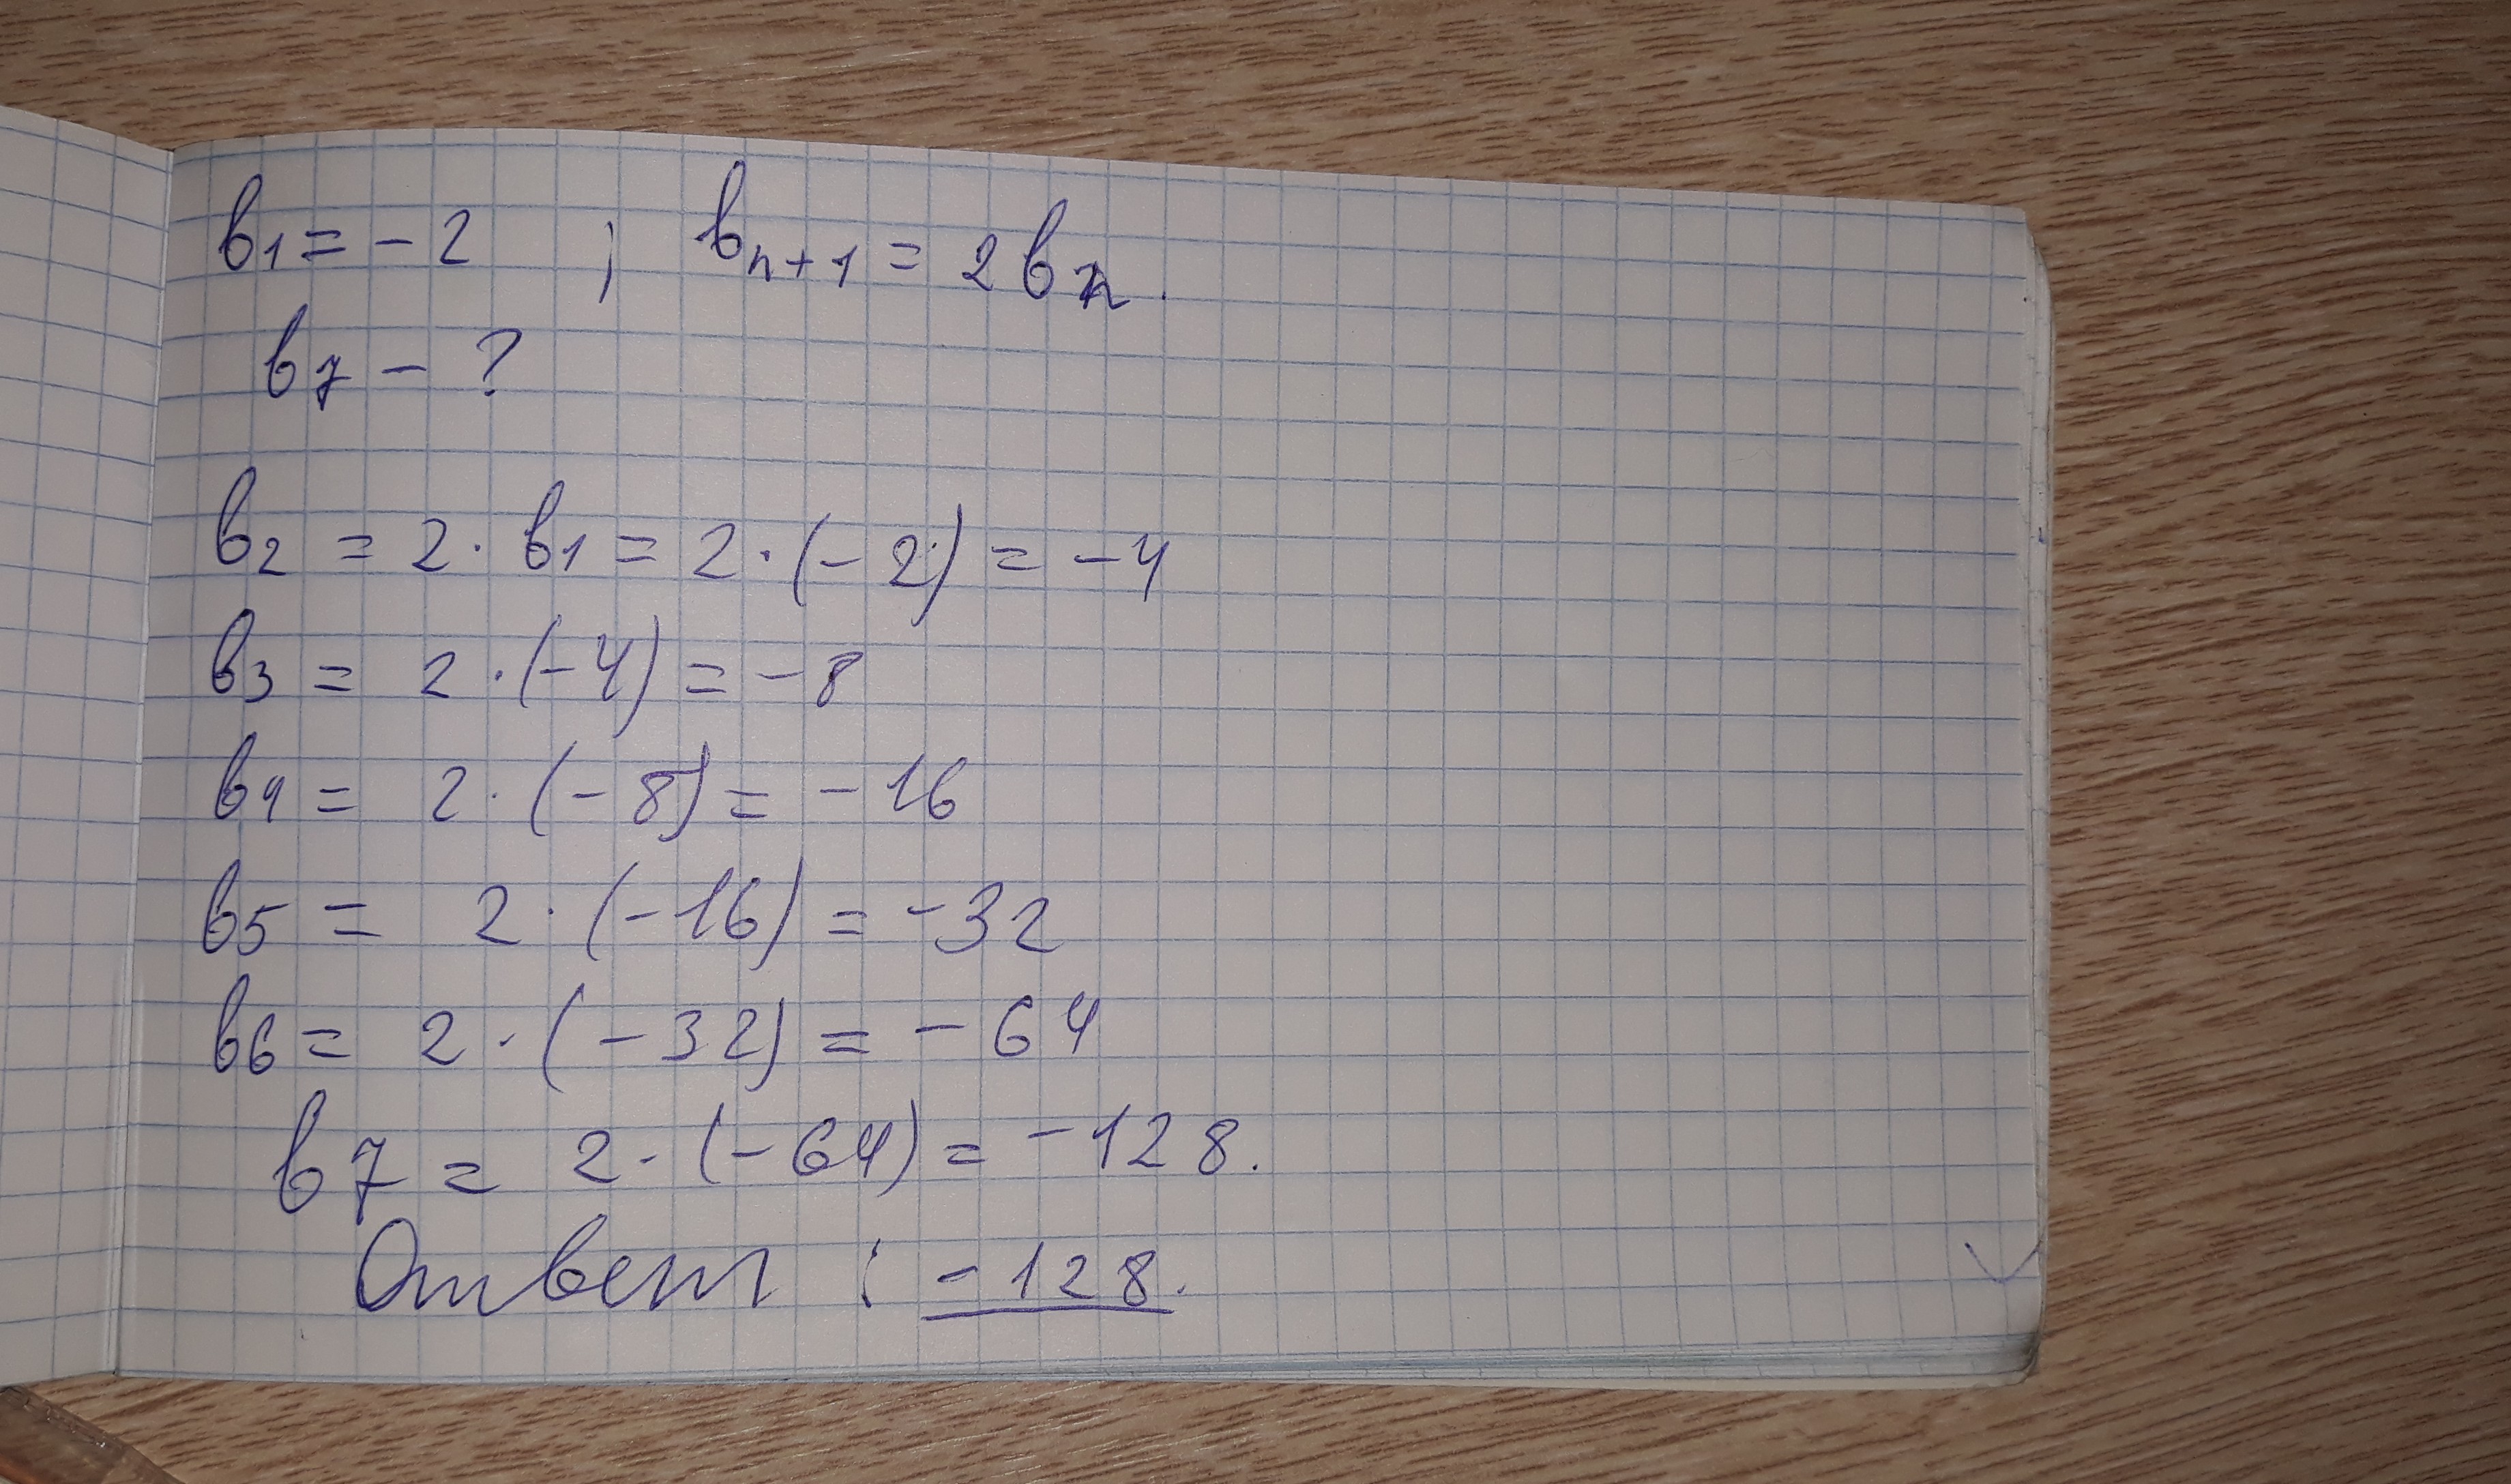 b₁ = -2 ; bₙ₊₁ = 2bₙ.
b₇ - ?
b₂ = 2·b₁ = 2·(-2) = -4
b₃ = 2·(-4) = -8
b₄ = 2·(-8) = -16
b₅ = 2·(-16) = -32
b₆ = 2·(-32) = -64
b₇ = 2·(-64) = -128.
Ответ : -128.